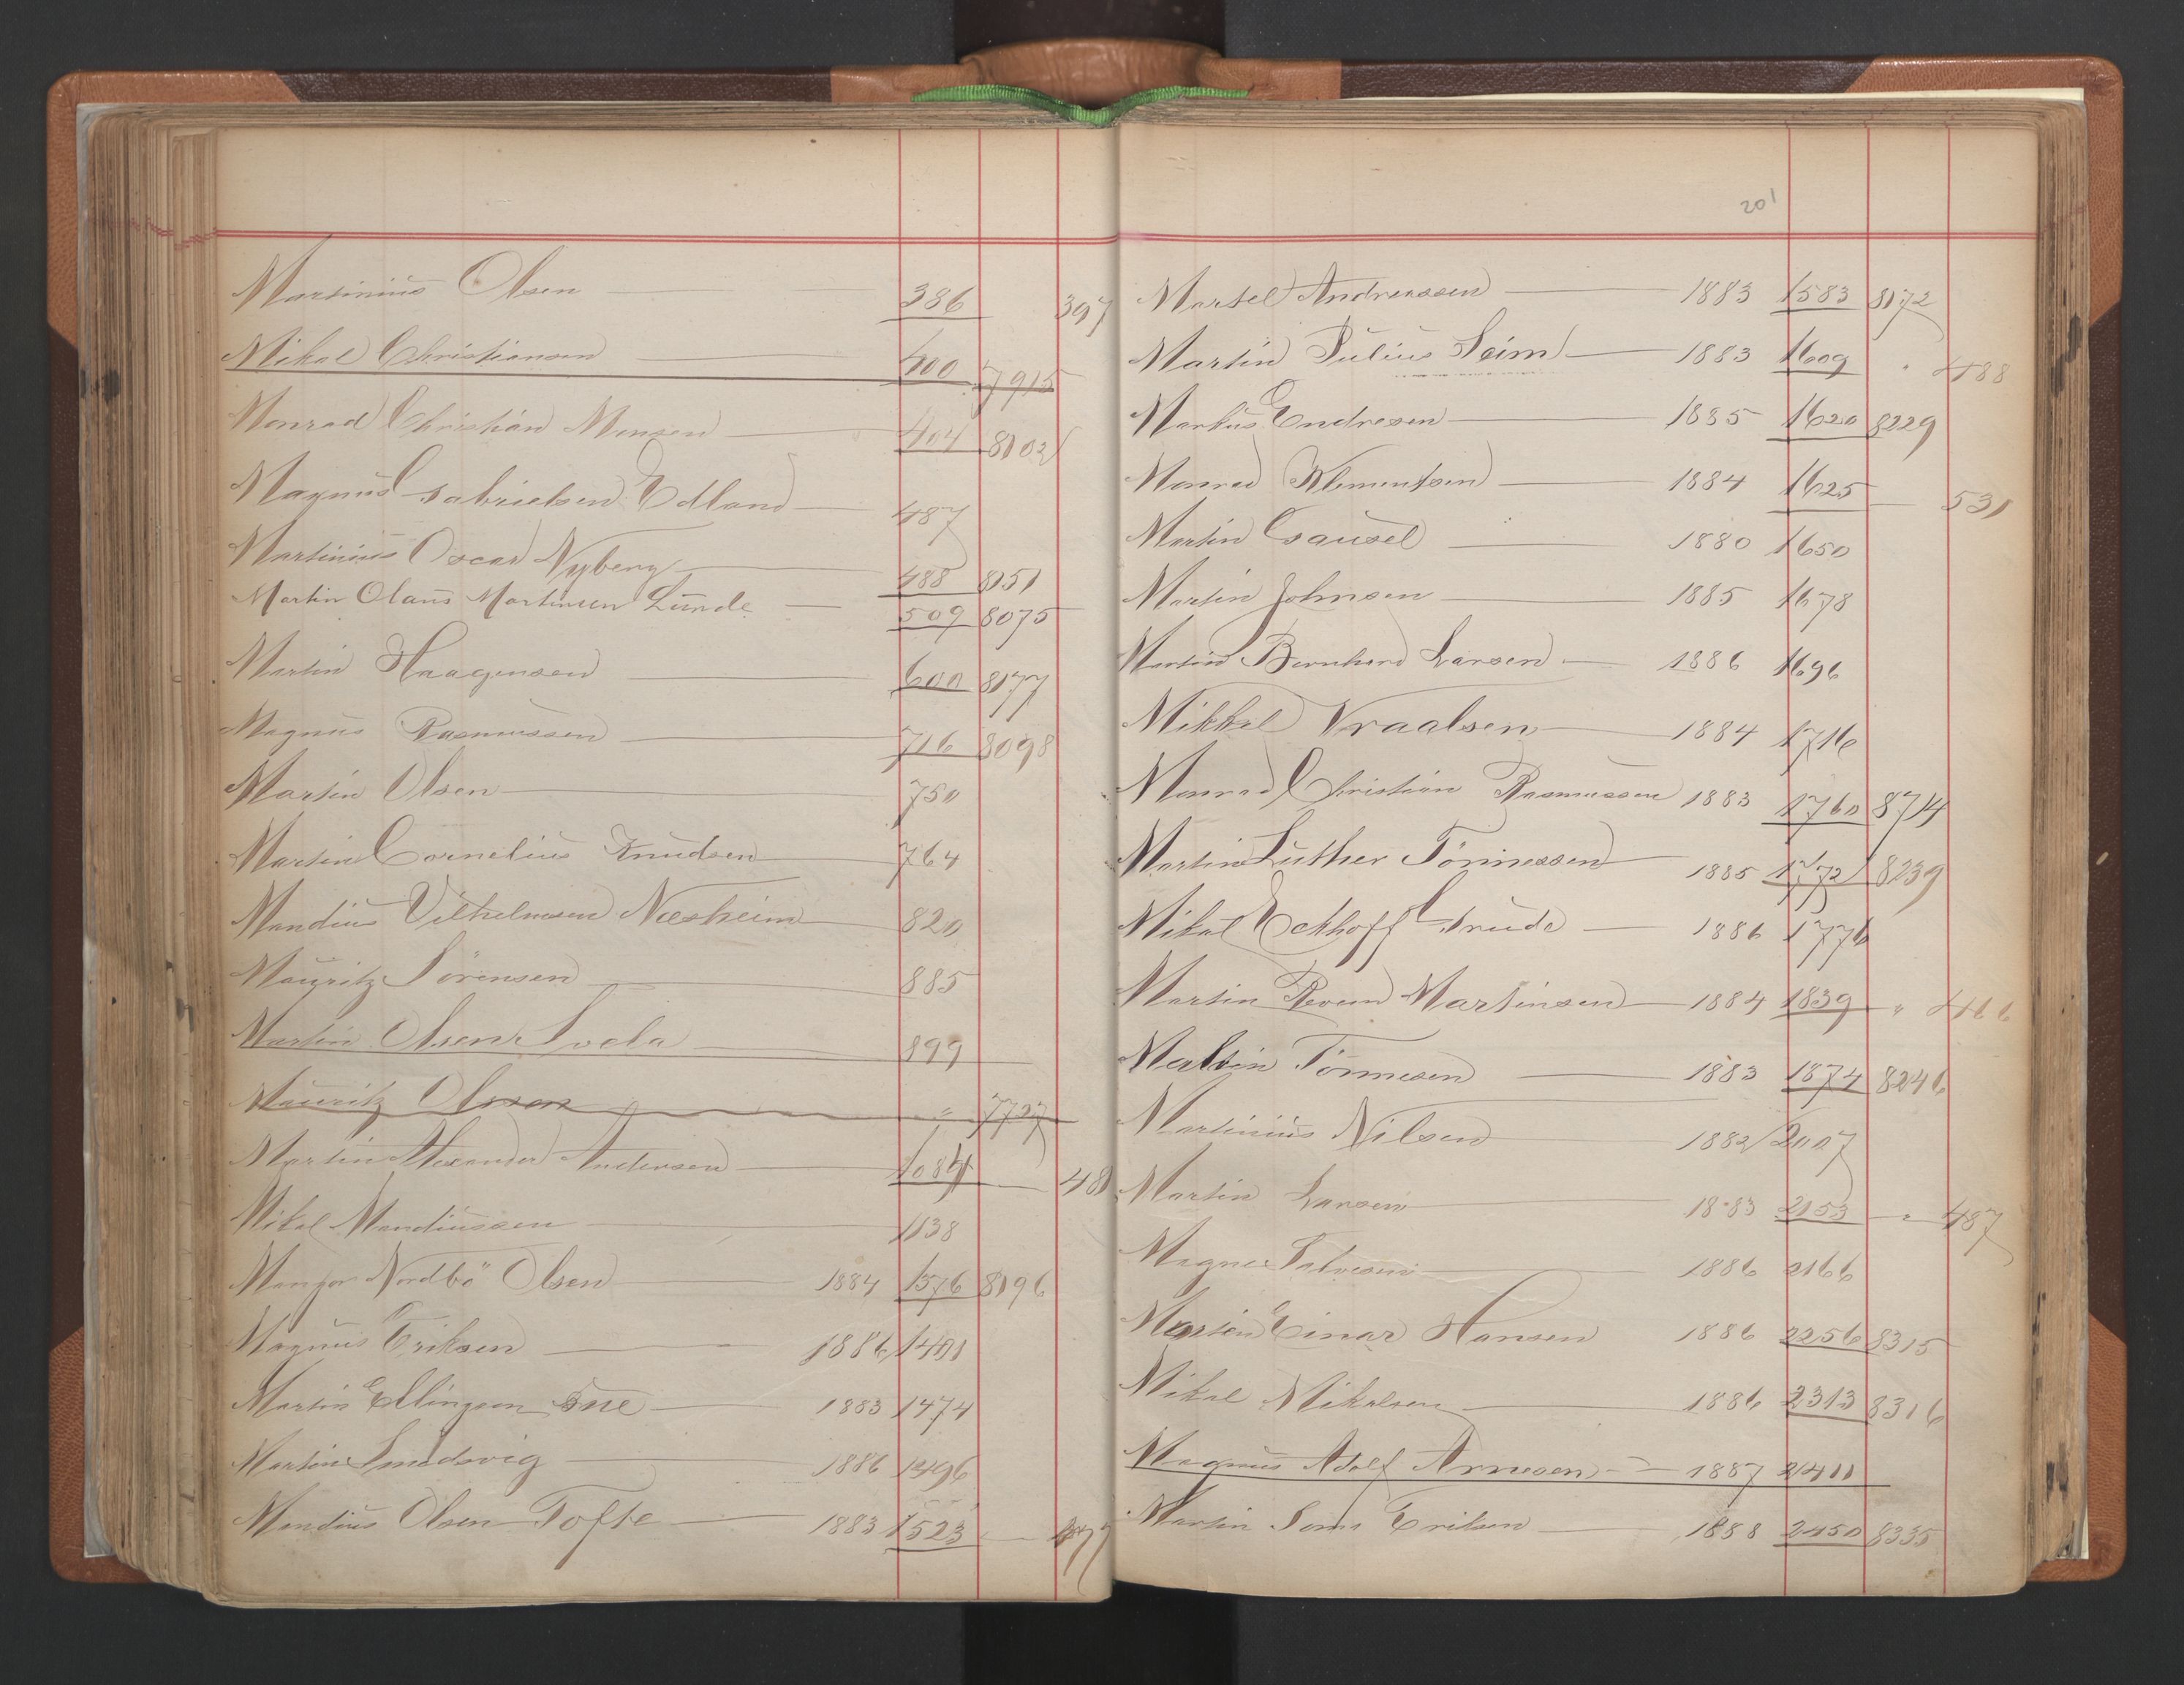 Martinius Olsen 386 397
Mikal Christiansen 400 7915
Monrad Christian Monsen 404 8102
Magnus Gabrielsen Edland 487
Martinius Oscar Nyberg 488 8151
Martin Olaus Martinsen Lunde 509 8075
Martin Haagensen 600 8177
Magnus Rasmussen 716 8098
Martin Olsen 750
Martin Cornelius Knudsen 764
Mandius Vilhelmsen Næsheim 820
Mauritz Sörensen 885
Martin Olsen Svela 899
Mauritz Olsen " 7727
Martin Alexander Andersen 481
Mikal Mandiussen 1138
Nordbö Olsen 1884 1376 8196
Magnus Eriksen 1886 1401
Martin Ellingsen 1883 1474
Martin Smedsvig 1886 1496
Mandius Olsen Tofte 1883 1523 477
201
Martel Andreassen 1883 1583 8172
Martin Julius Seim 1883 1609 " 488
Markus Endresen 1885 1620 8229
Monrad Klementsen 1884 1625 531
Martin Gausel 1880 1650
Martin Johnsen 1885 1678
Martin Bernhard Larsen 1886 1696
Mikkel Vraalsen 1884 1716
Monrad Christian Rasmussen 1883 1760 8714
Martin Luther Tönnessen 1885 1772 8239
Mikal Eckhoff Grude 1886 1776
Martin Martinsen 1884 1839 " 466
Martin Tönnesen 1883 1874 8246
Martinius Nilsen 1882 2007
Martin Larsen 1883 2153 " 487
Magne 1886 2166
Martin Einar Hansen 1886 2256 8315
Mikal Mikalsen 1886 2313 8316
Magnus Adolf Arnesen 1887 2411
Martin Eriksen 1888 2450 8335